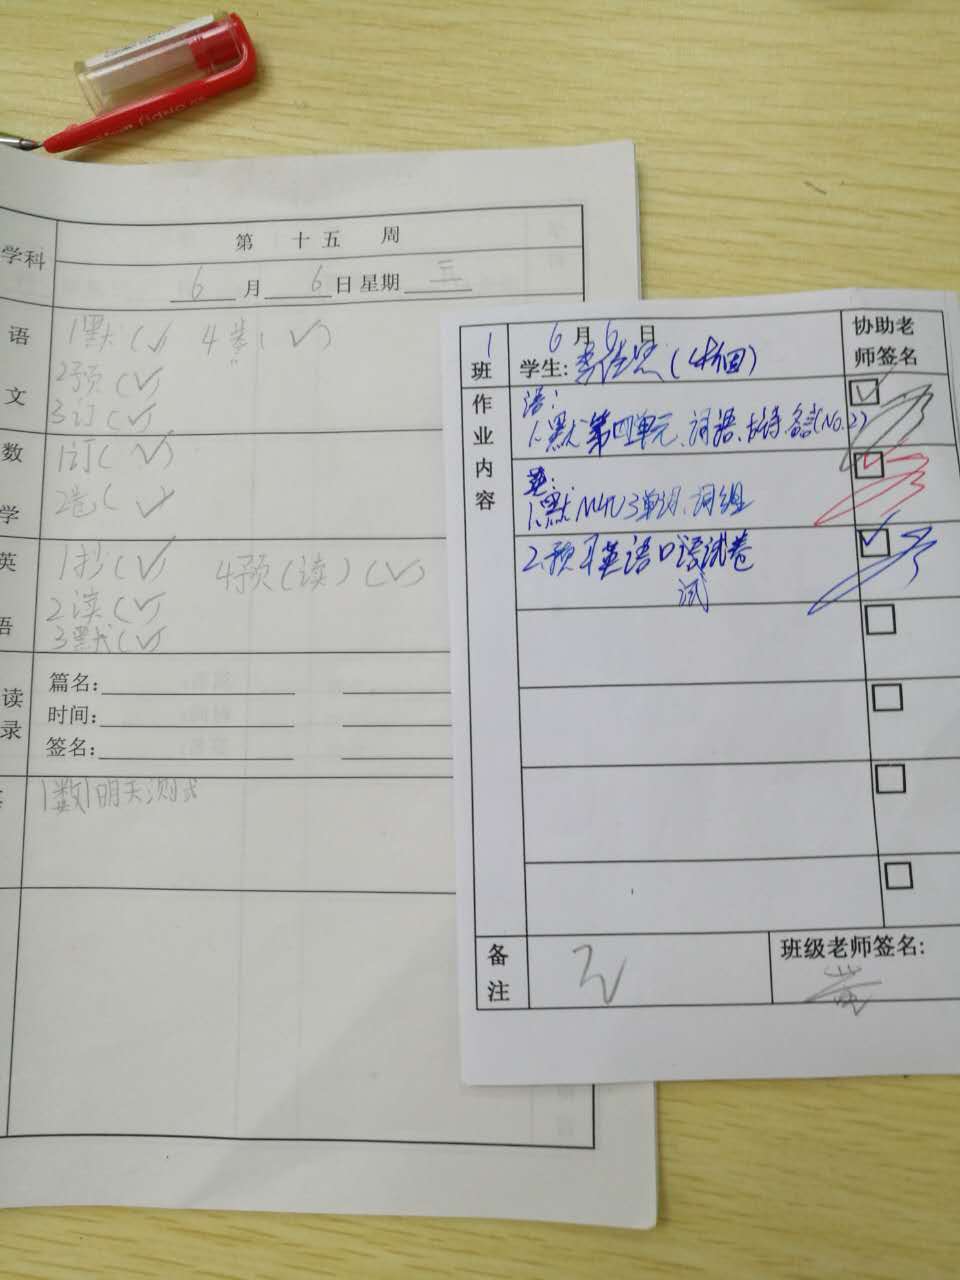 学科
第 十五 周
6 月 6 日 星期 三
语文
1默(✓) 4卷(✓)
2预(✓)
3订(✓)
数学
1订(✓)
2卷(✓)
英语
1抄(✓) 4预(读)(✓)
2读(✓)
3默(✓)
读
录
篇名:
时间:
签名:
1数明天测试
1班
6月6日
学生: (四)
协助老师签名
作业内容
语:
1.默第四单元、词语、古诗、(No.2)
英:
1.默M4U3单词、词组
2.预习英语口语试卷
试
备注
无
班级老师签名:
黄